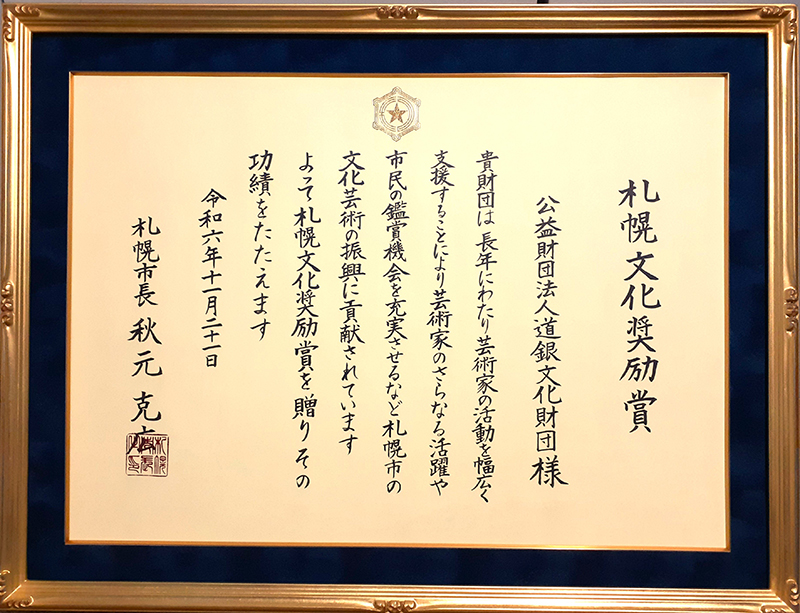 札幌文化奨励賞
公益財団法人道銀文化財団様
貴財団は長年にわたり芸術家の活動を幅広く
支援することにより芸術家のさらなる活躍や
市民の鑑賞機会を充実させるなど札幌市の
文化芸術の振興に貢献されています
よって札幌文化奨励賞を贈りその
功績をたたえます
令和六年十一月二十一日
札幌市長 秋元克